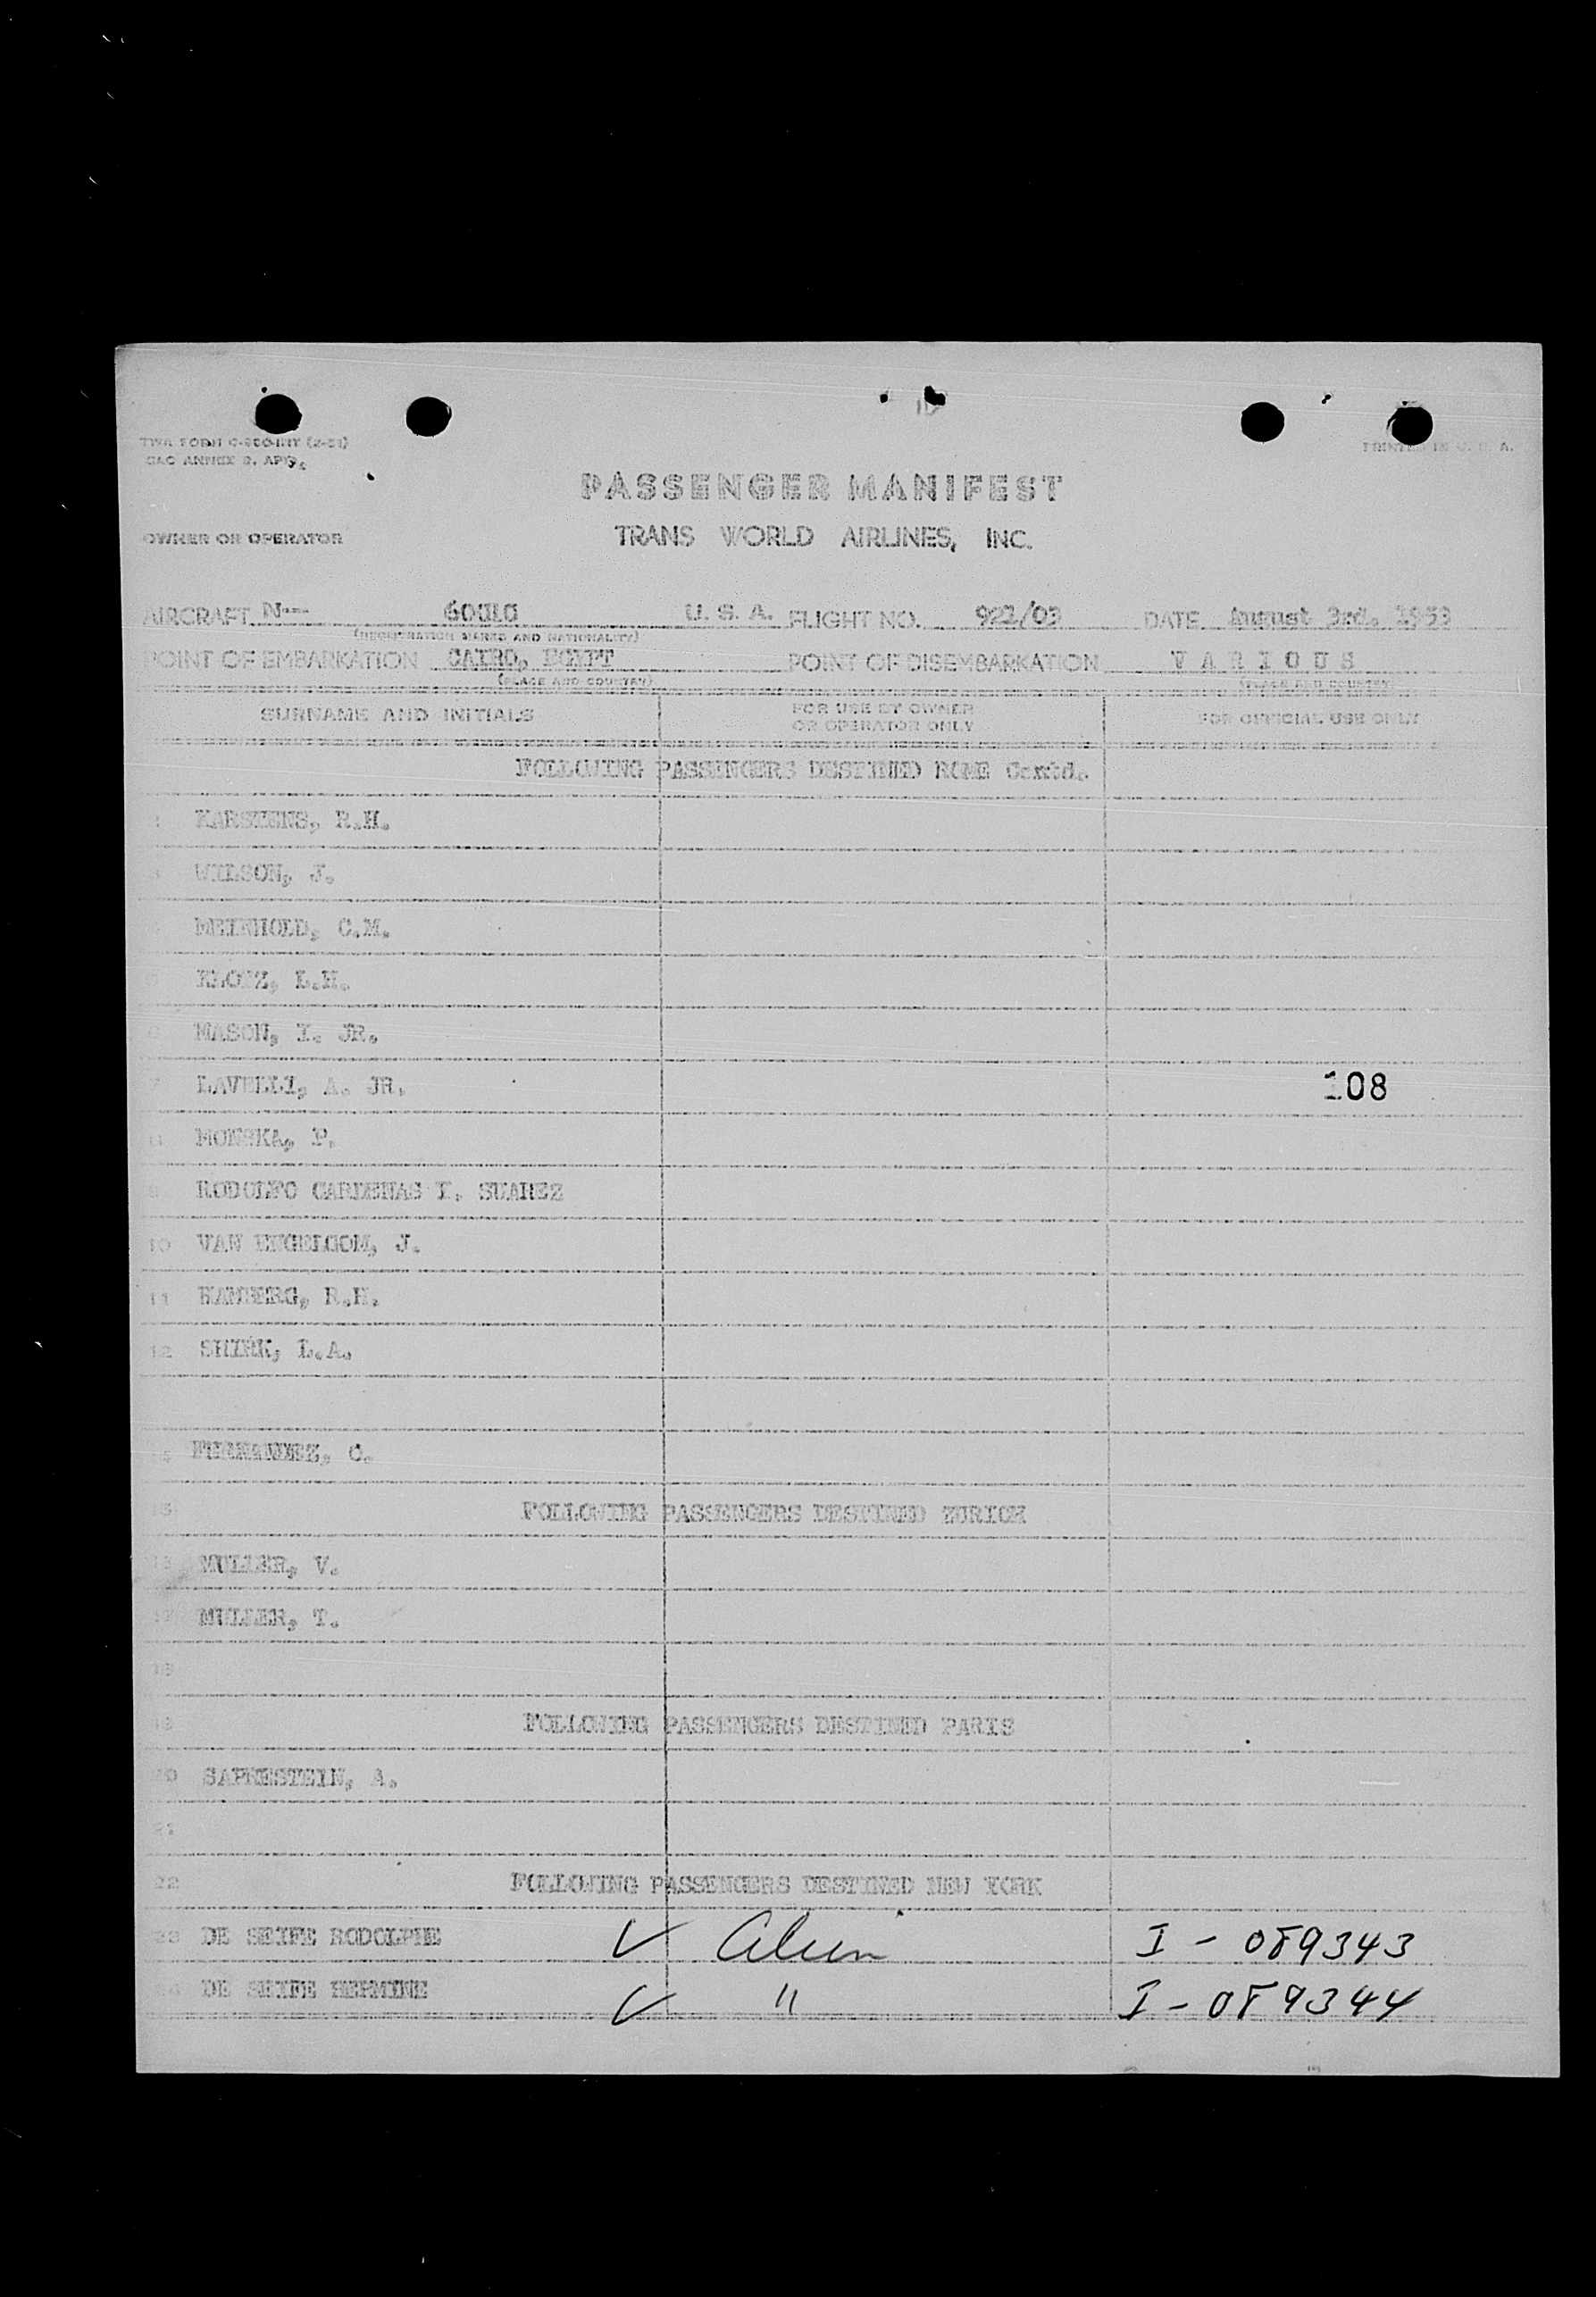 PRINTED IN U. S. A.
PASSENGER MANIFEST
OWNER OR OPERATOR TRANS WORLD AIRLINES, INC.
AIRCRAFT N-- U. S. A. FLIGHT NO. 921/03 DATE August 3rd. 1953
(REGISTRATION MARKS AND NATIONALITY)
POINT OF EMBARKATION CAIRO, EGYPT POINT OF DISEMBARKATION V A R I O U S
(PLACE AND COUNTRY) (PLACE AND COUNTRY)
SURNAME AND INITIALS FOR USE BY OWNER OR OPERATOR ONLY FOR OFFICIAL USE ONLY
FOLLOWING PASSENGERS DESTINED ROME Contd.
KARSTENS, R.H.
WILSON, J.
MEINHOLD, C.M.
KLOTZ, L.H.
MASON, I. JR.
7 LAVELLI, A. JR. 108
MONSKA, P.
9 RODOLFO CARDENAS I. SUAREZ
10 VAN ENGELGOM, J.
11 HAMBERG, R.H.
12 SHIRK, L.A.
FERNANDEZ, C.
15 FOLLOWING PASSENGERS DESTINED ZURICH
MULLER, V.
MULLER, T.
FOLLOWING PASSENGERS DESTINED PARIS
20 SAPRESTEIN, A.
21
22 FOLLOWING PASSENGERS DESTINED NEW YORK
23 DE SEIFE RODOLPHE ✓ Alien I - 089343
24 DE SEIFE HERMINE ✓ " I - 089344